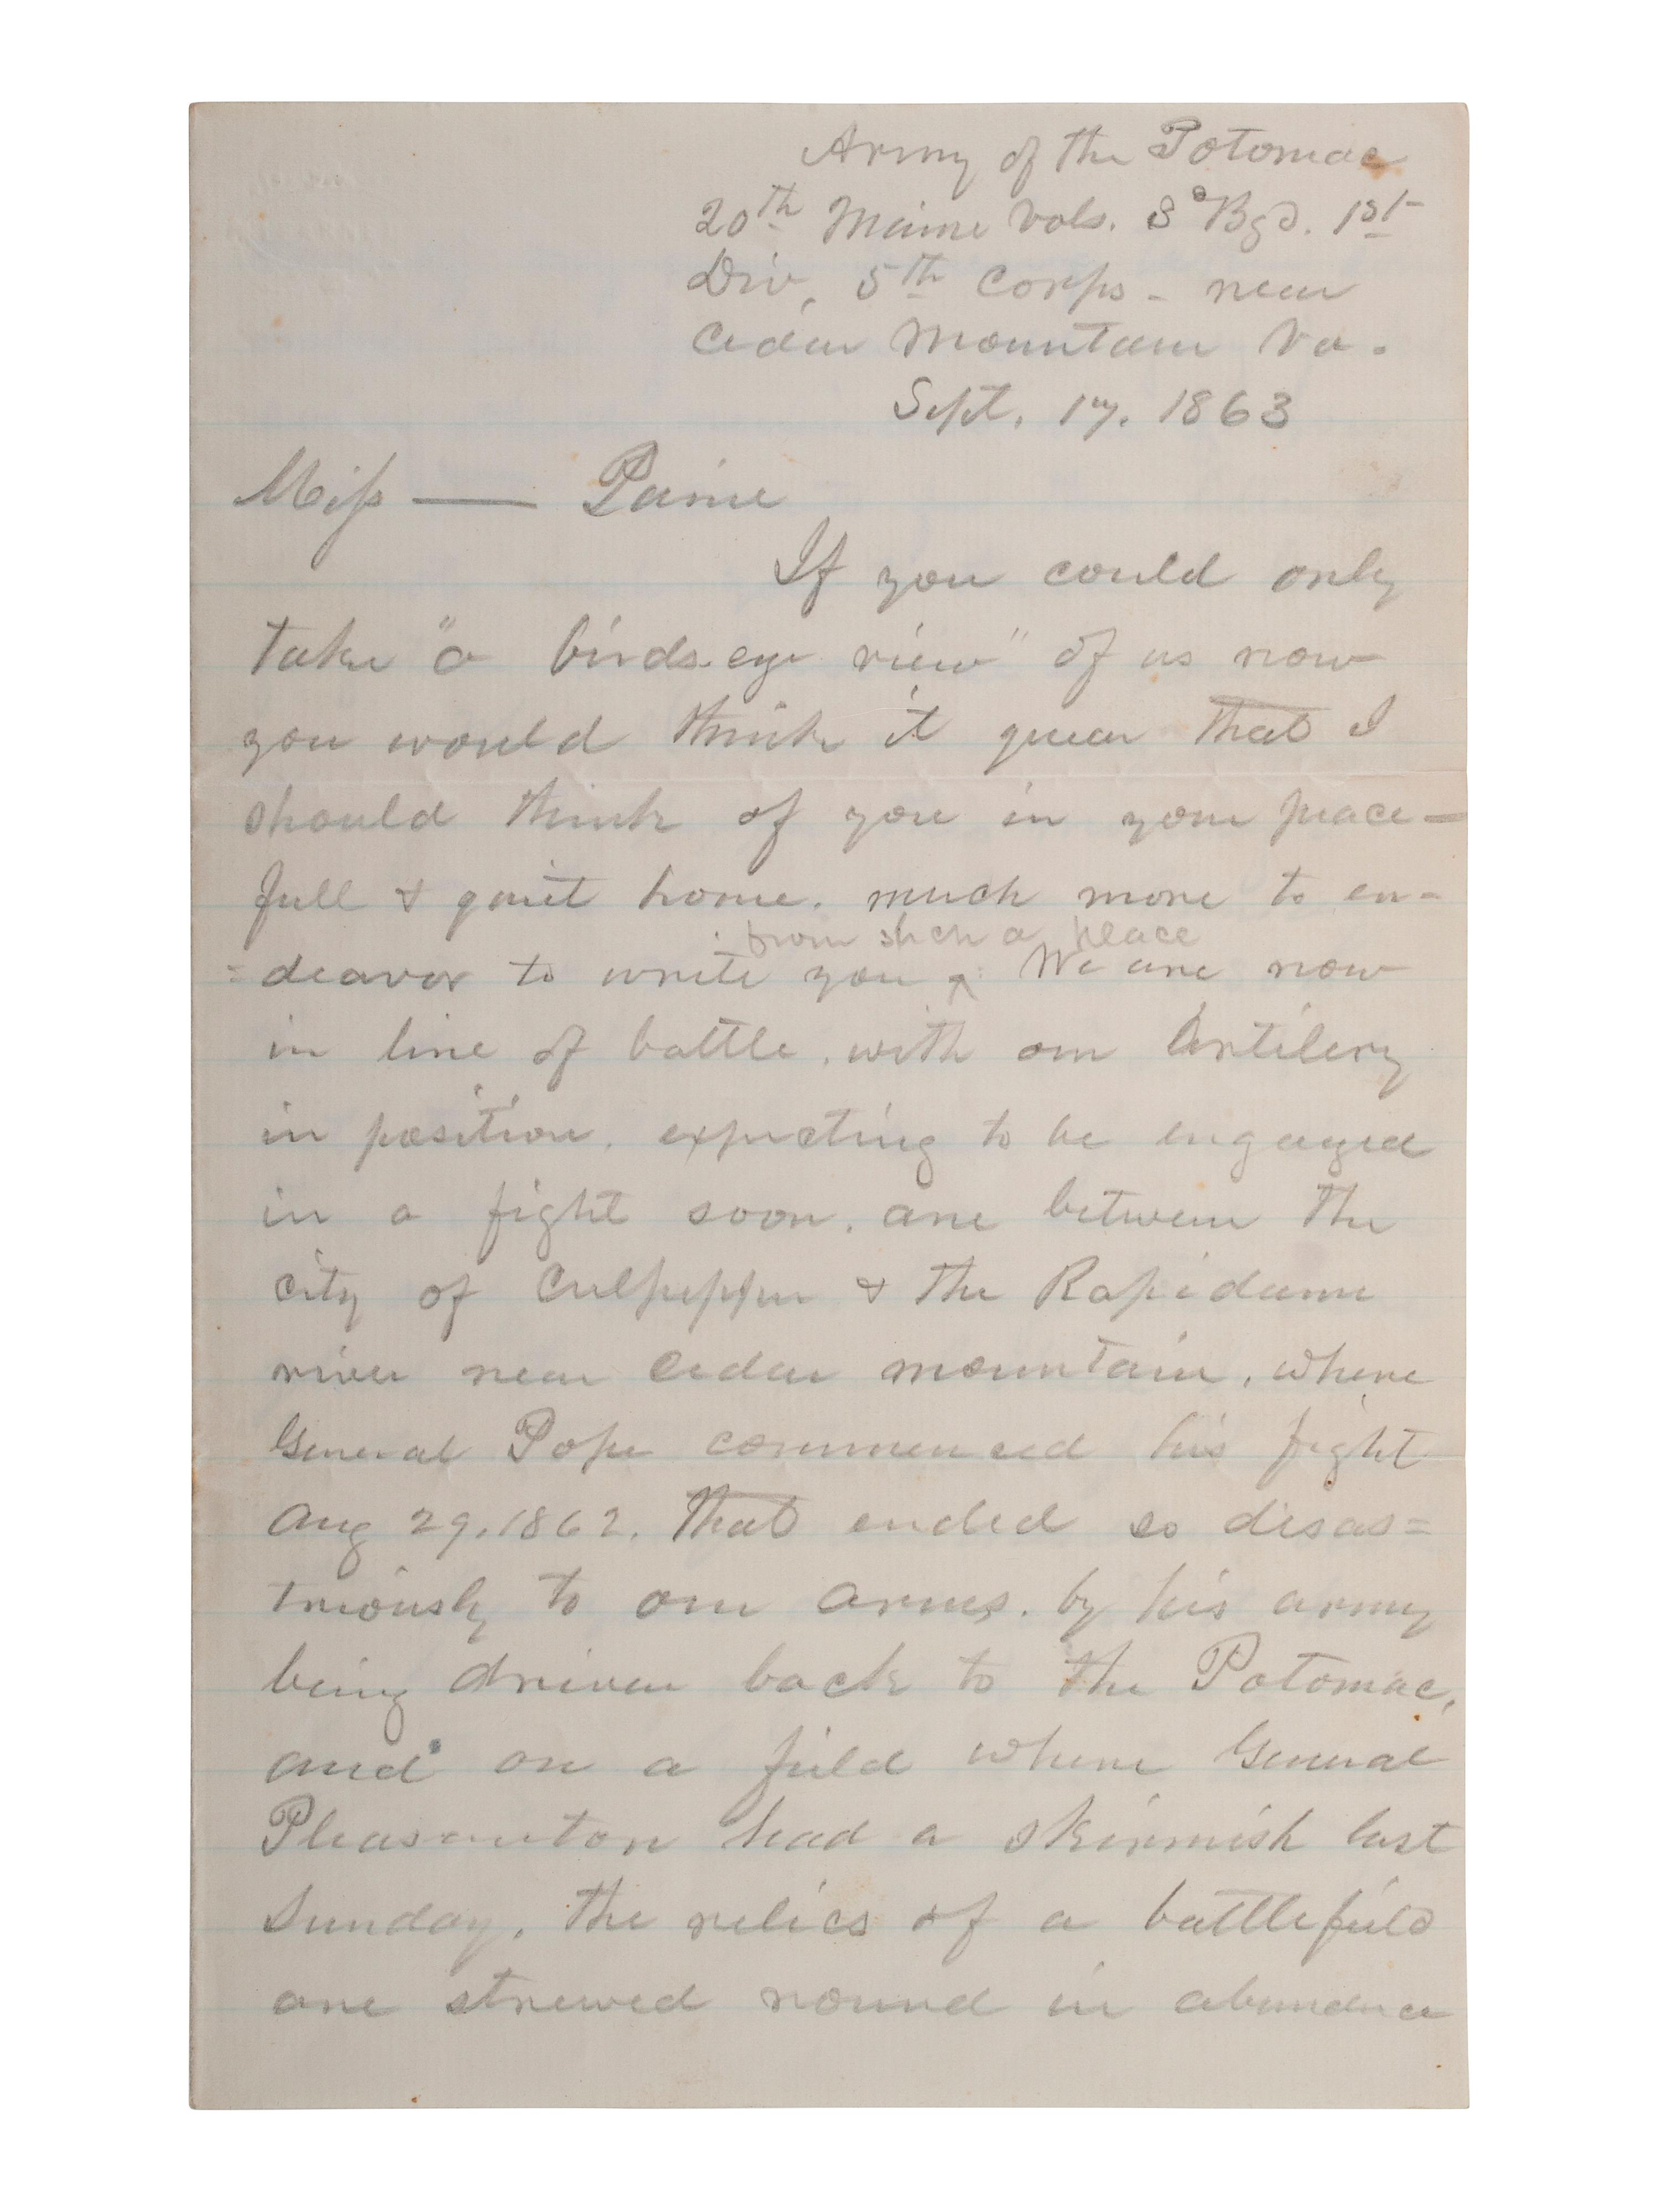 Army of the Potomac
20th Maine Vols. 3d Bgd. 1st
Div, 5th Corps - near
Cedar Mountain Va.
Sept. 17. 1863
Miss —— Paine
If you could only
take "a birds-eye view" of us now
you would think it queer that I
should think of you in your peace-
full & quiet home. much more to en-
=deavor to write you ^ We are now
from such a place
in line of battle, with our Artilery
in position, expecting to be engaged
in a fight soon. are between the
city of Culpepper & the Rapidann
river near Cedar mountain, where
General Pope commenced his fight
Aug 29. 1862. that ended so disas=
triously to our arms. by his army
being driven back to the Potomac,
and on a field where General
Pleasanton had a skirmish last
Sunday, the relics of a battlefield
are strewed round in abundance